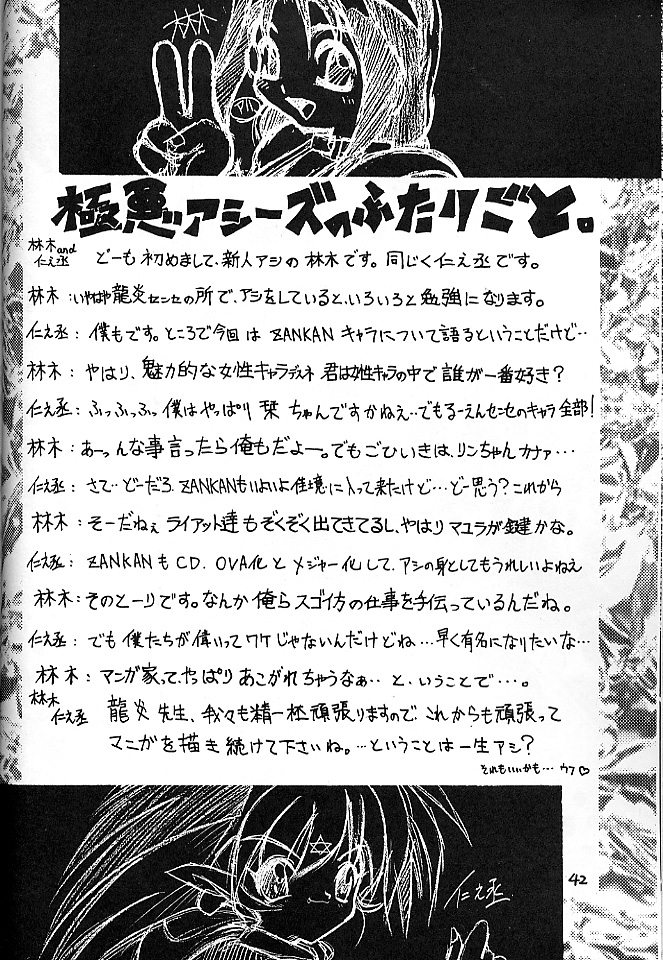 林木
極悪アシーズのふたりごと。
林木and仁え丞 どーも初めまして、新人アシの林木です。同じく仁え丞です。
林木:いやはや龍炎センセの所で、アシをしていると、いろいろと勉強になります。
仁え丞:僕もです。ところで今回はZANKANキャラについて語るということだけど‥
林木:やはり、魅力的な女性キャラデスネ 君は女性キャラの中で誰が一番好き?
仁え丞:ふっふっふっ僕はやっぱり栞ちゃんですかねえ‥でもるーえんセンセのキャラ全部!
林木:あーっんな事言ったら俺もだよー。でもごひいきは、リンちゃんカナァ…
仁え丞:さて‥どーだろ、ZANKANもいよいよ佳境に入って来たけど…どー思う?これから
林木:そーだねぇ ライアット達もぞくぞく出てきてるし、やはりマユラが鍵かな。
仁え丞:ZANKANもCD、OVA化とメジャー化して、アシの身としてもうれしいよねえ
林木:そのとーりです。なんか俺らスゴイ方の仕事を手伝っているんだね。
仁え丞:でも僕たちが偉いってワケじゃないんだけどね…早く有名になりたいな…
林木:マンガ家って、やっぱりあこがれちゃうなぁ‥と、いうことで…。
林木 仁え丞 龍炎先生、我々も精一杯頑張りますので、これからも頑張って
マンガを描き続けて下さいね。…ということは一生アシ?
それもいいかも… ウフ♡
42
仁え丞